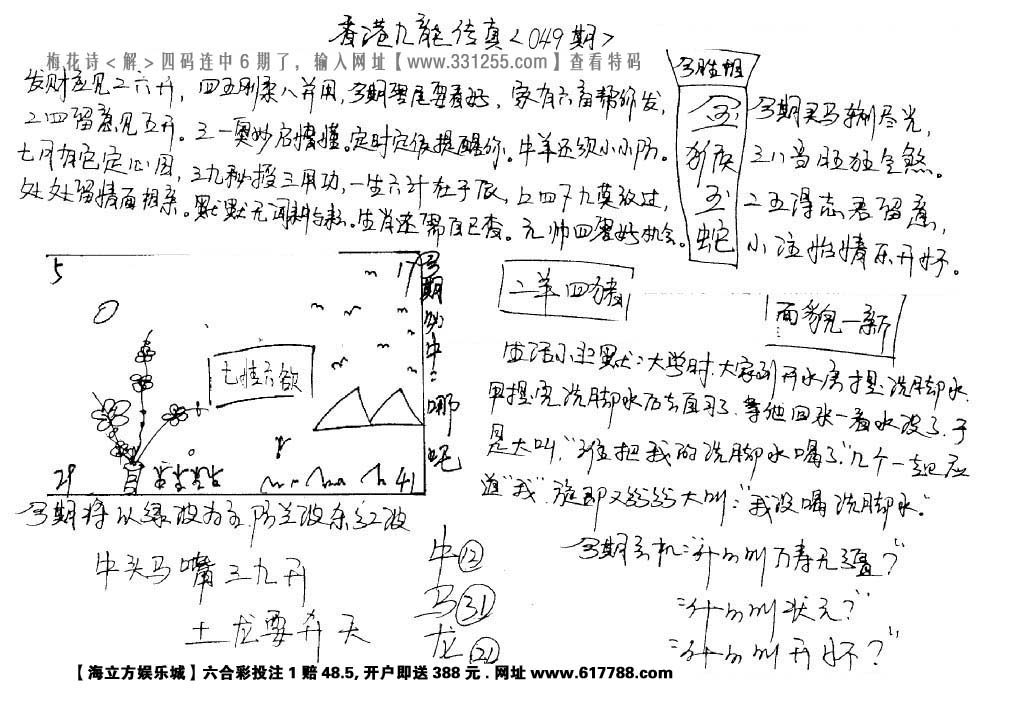 香港九龍传真<049期>
梅花诗<解>四码连中6期了，输入网址【www.331255.com】查看特码
发财应见二六开，四五刚柔八并用，今期蛋尾要看好，家有六畜帮你发，
二四留意见五开。三一奥妙后懂。定时定位提醒你。牛羊还须小小防。
七月相定心因，三九秘授三用功，一生六计在于辰，上四下九莫放过，
处处留情面相亲。默默无闻耕与耘。生肖还需自己查。元帅四蛋好机会。
今期灵马辣尽光，
三八当旺狂全煞。
二五得志君留意，
小注怡情乐开好。
金
猴
玉
蛇
5
17
七情六欲
29
41
今期知中：哪
二羊四猪
面貌一新
生活小幽默：大学时，大家到开水房提洗脚水，
甲提完洗脚水后去自习了，等他回来一看水没了，于
是大叫，"谁把我的洗脚水喝了"几个一起应
道"我"，旋即又纷纷大叫："我没喝洗脚水。"
今期将以绿波为主，防兰波杀红波
牛头马嘴三九开
土龙要升天
牛⑫
马㉛
龙㉑
今期玄机："什么叫万寿无疆？"
"什么叫状元？"
"什么叫开怀？"
【海立方娱乐城】六合彩投注1赔48.5,开户即送388元.网址www.617788.com